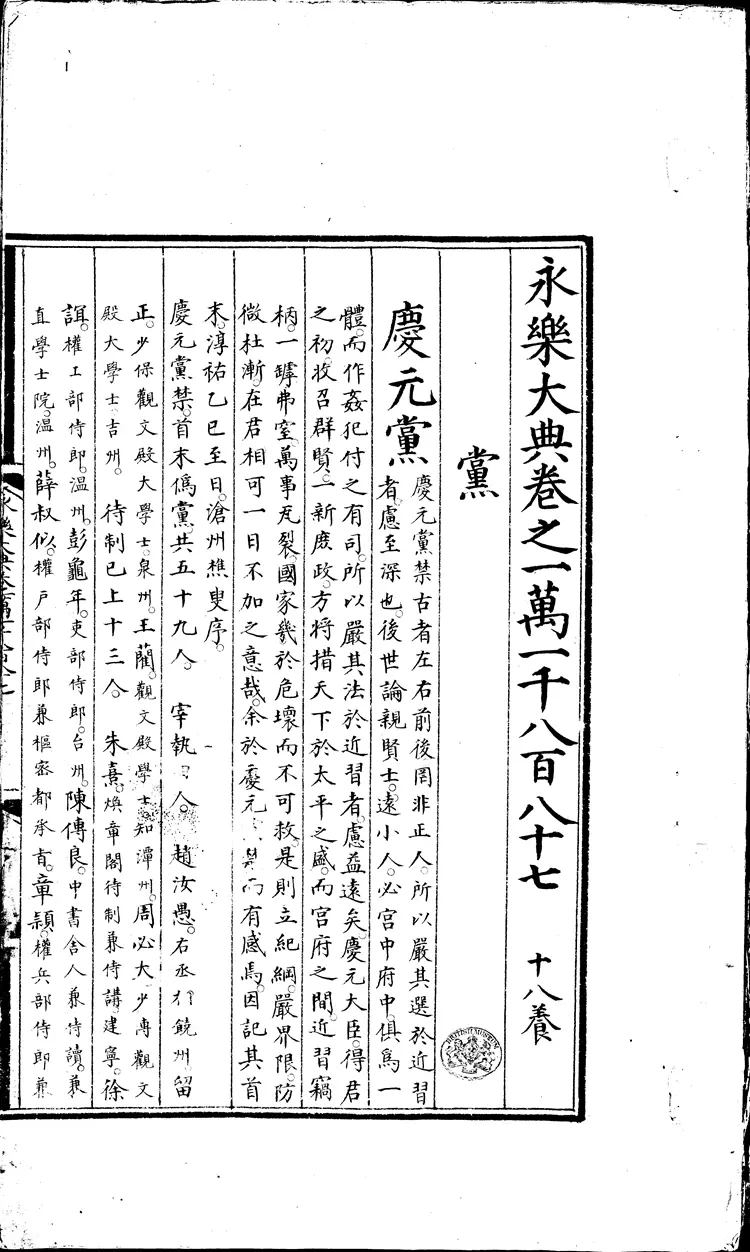 永樂大典卷之一萬一千八百八十七 十八養
黨
慶元黨
慶元黨禁古者左右前後罔非正人。所以嚴其選於近習
者。慮至深也。後世論親賢士。遠小人。必宮中府中。俱爲一
體。而作姦犯付之有司。所以嚴其法於近習者。慮益遠矣。慶元大臣。得君
之初。收召群賢。一新庶政。方將措天下於太平之盛。而宮府之間。近習竊
柄。一罅弗窒。萬事瓦裂。國家幾於危壞而不可救。是則立紀綱。嚴界限。防
微杜漸。在君相可一日不加之意哉。余於慶元 而有感焉。因記其首
末。淳祐乙巳至日。滄州樵叟序。
慶元黨禁。首末僞黨。共五十九人。 宰執 人。 趙汝愚。右丞 饒州 留
正。少保觀文殿大學士。泉州。王藺。觀文殿學士知潭州。周必大。少傅觀文
殿大學士吉州。 待制已上十三人。 朱熹。煥章閣待制兼侍講。建寧。徐
誼。權工部侍郎。温州。彭龜年。吏部侍郎。台州。陳傅良。中書舍人兼侍讀。兼
直學士院。温州。薛叔似。權戶部侍郎兼樞密都承旨。章穎。權兵部侍郎兼
永樂大典卷一萬一千八百八十七
BRITISH MUSEUM